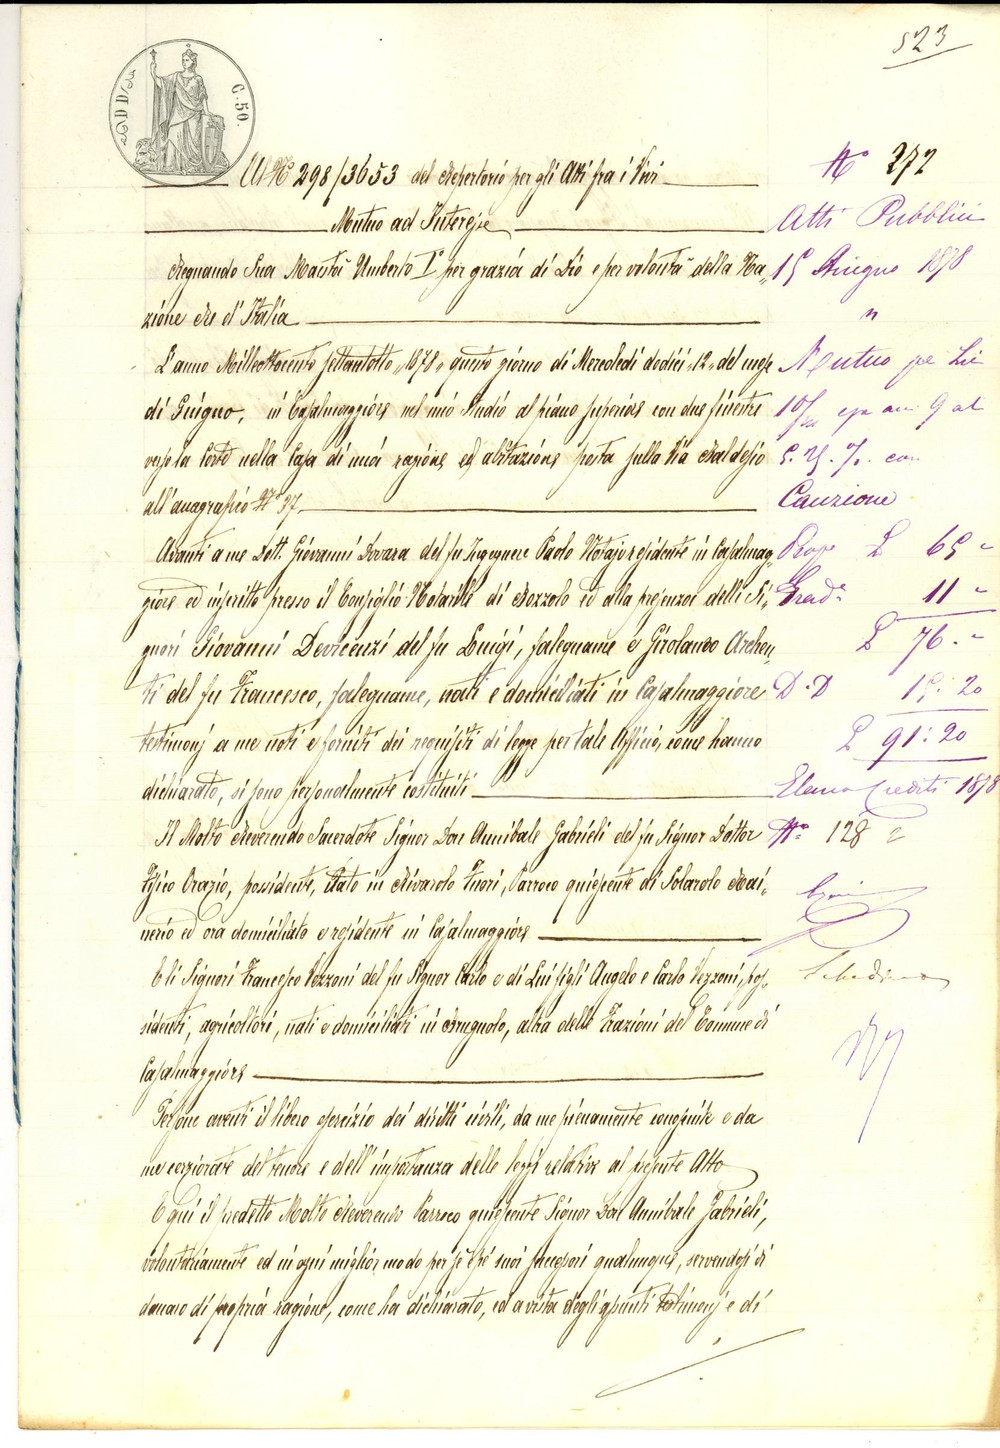 523
C. 50.
Al N.° 298/3653 del Repertorio per gli Atti fra i Vivi
Mutuo ad Interesse
Regnando Sua Maestà Umberto I° per grazia di Dio e per volontà della Na„
zione Re d'Italia
L'anno Milleottocento settantotto „1878„ questo giorno di Mercoledì dodici „12„ del mese
di Giugno, in Casalmaggiore nel mio Studio al piano superiore con due finestre
verso la Corte nella Casa di mia ragione ed abitazione posta sulla Via Baldesio
all'anagrafico N.° 27
Avanti a me Dott. Giovanni Lovara del fu Ingegnere Paolo Notajo residente in Casalmag„
giore ed inscritto presso il Consiglio Notarile di Bozzolo ed alla presenza delli Si„
gnori Giovanni Devicenzi del fu Luigi, falegname e Girolamo Archen„
ti del fu Francesco, falegname, nati e domiciliati in Casalmaggiore
testimonj a me noti e forniti dei requisiti di legge per tale Officio, come hanno
dichiarato, si sono personalmente costituiti
Il Molto Reverendo Sacerdote Signor Don Annibale Gabrieli del fu Signor Dottor
Fisico Orazio, possidente, nato in Rivarolo Fuori, Parroco quiescente di Solarolo Rai„
nerio ed ora domiciliato e residente in Casalmaggiore
E li Signori Francesco Vezzoni del fu Signor Carlo e di Lui figli Angelo e Carlo Vezzoni, pos„
sidenti, agricoltori, nati e domiciliati in Brugnolo, altra delle Frazioni del Comune di
Casalmaggiore
Persone aventi il libero esercizio dei diritti civili, da me pienamente conosciute e da
me cerziorate del tenore e dell'importanza delle leggi relative al presente Atto
E qui il predetto Molto Reverendo Parroco quiescente Signor Don Annibale Gabrieli,
volontariamente ed in ogni miglior modo per se e pei suoi successori qualunque, servendosi di
danaro di propria ragione, come ha dichiarato, ed a vista degli assunti testimonj e di
N.° 272
Atti Pubblici
15 Giugno 1878
"
Mutuo per Lire
per anni 9 al
con
Cauzione
Prop L 65 "
Grad.e 11 "
L 76. "
D. D 15: 20
L 91: 20
Elenco Crediti 1878
N.° 128